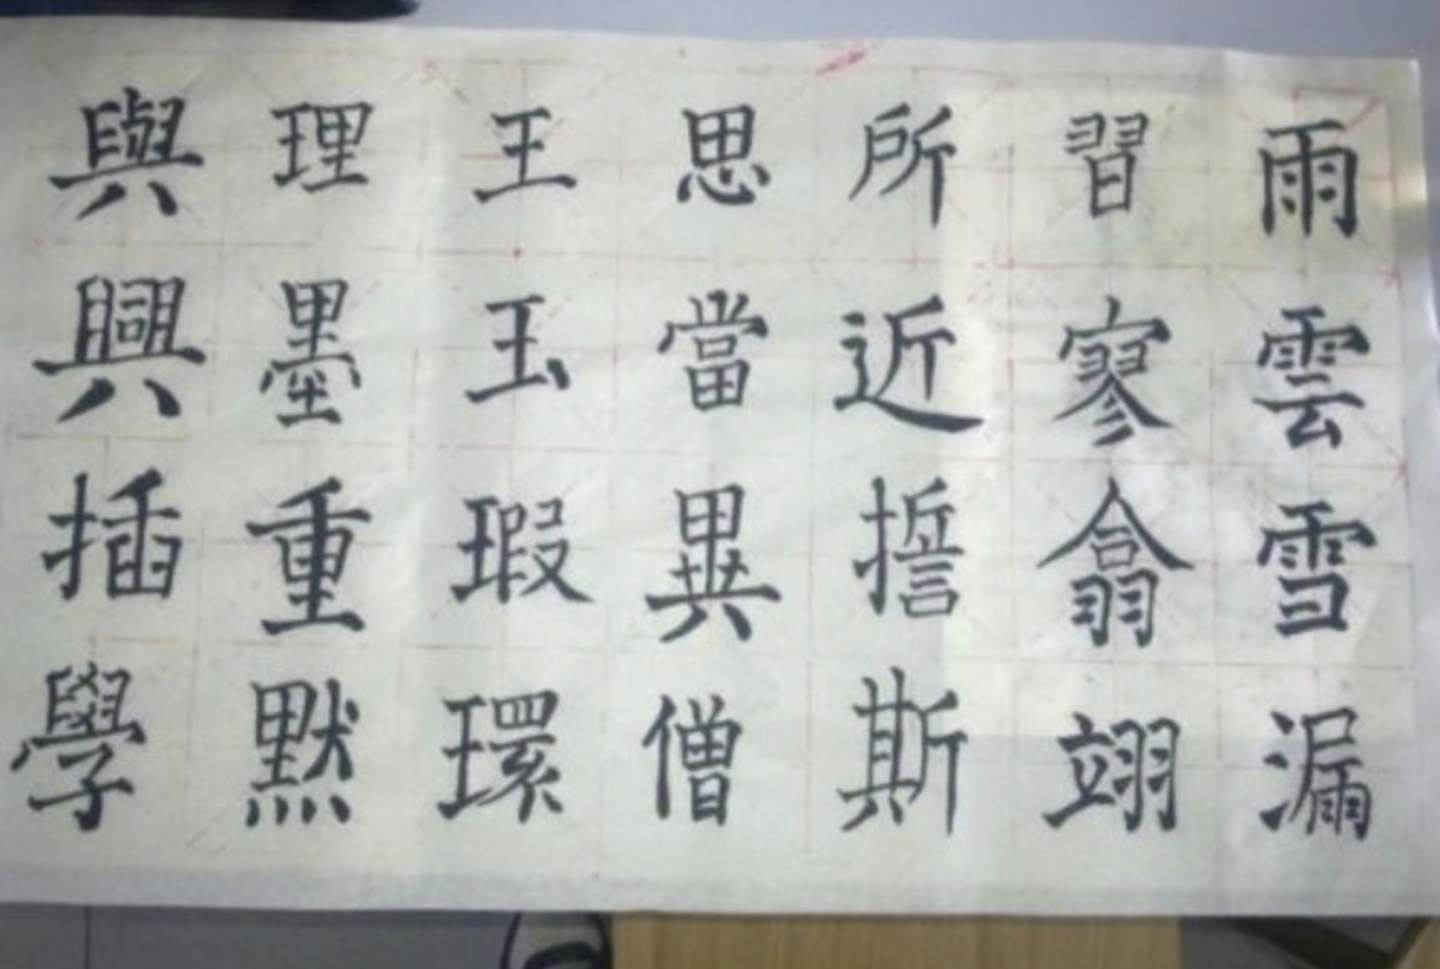 雨雲雪漏
習寥翕翊
所近誓斯
思當異僧
王玉瑕環
理墨重默
與興插學